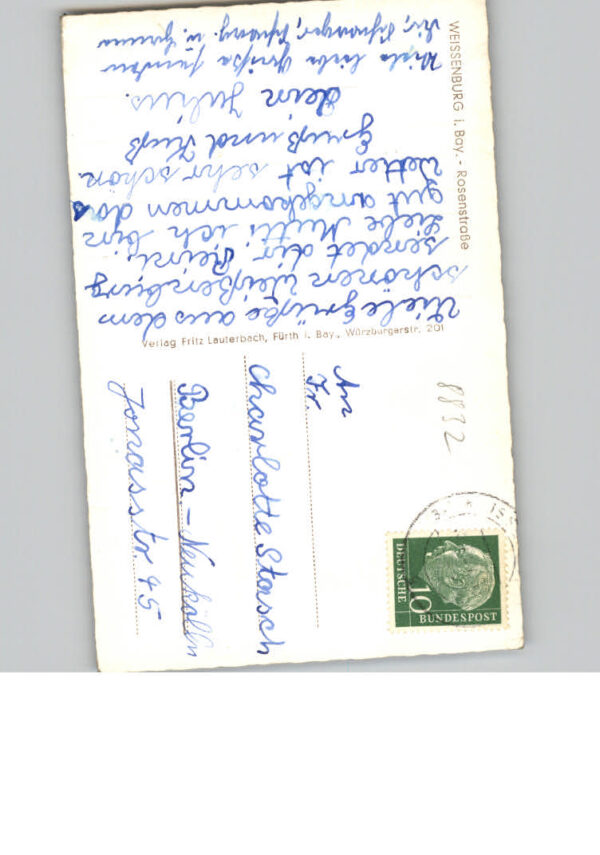 WEISSENBURG i. Bay. - Rosenstraße
Viele Grüße aus dem
schönen Weißenburg
sendet dir Reini,
Liebe Mutti ich bin
gut angekommen das
Wetter ist sehr schön.
Gruß und Kuß
dein Julius.
Viele liebe Grüße senden
Dir, Schwager, Schwäg. u.
Verlag Fritz Lauterbach, Fürth i. Bay., Würzburgerstr. 201
8892
An
Fr.
Charlotte Stasch
Berlin - Neukölln
Jonasstr 45
10
DEUTSCHE
BUNDESPOST